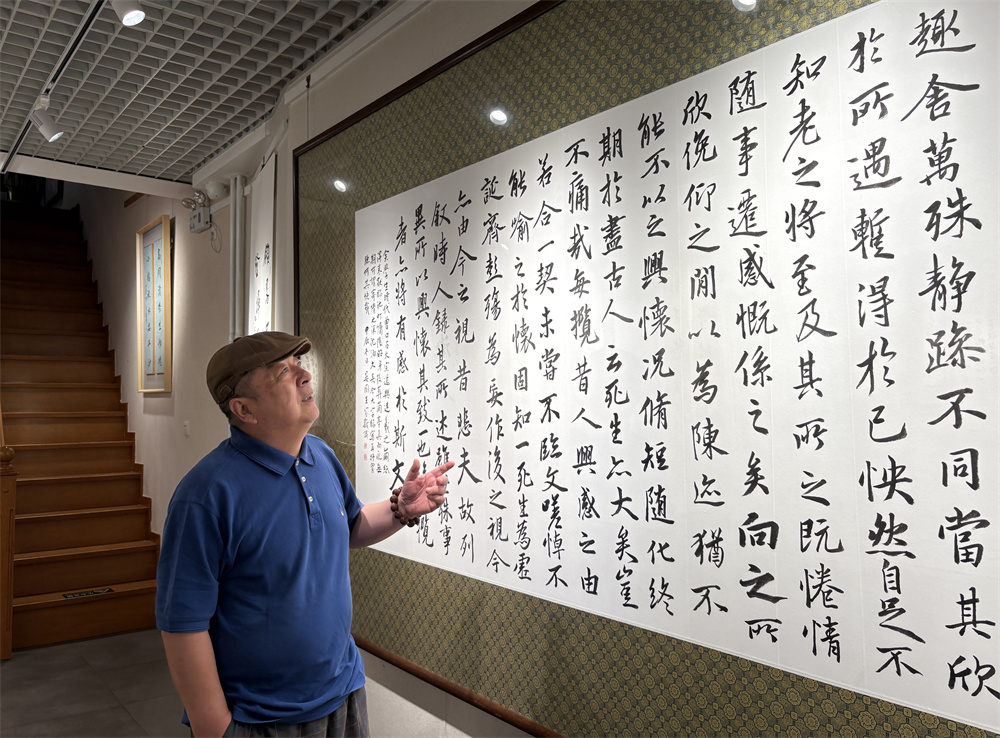 趣舍萬殊静躁不同當其欣
於所遇暫得於己怏然自足不
知老之将至及其所之既惓情
随事遷感慨係之矣向之所
欣俛仰之閒以為陳迹猶不
能不以之興懷况脩短随化終
期於盡古人云死生亦大矣豈
不痛哉每攬昔人興感之由
若合一契未嘗不臨文嗟悼不
能喻之於懷固知一死生為虛
誕齊彭殤為妄作後之視今
亦由今之視昔悲夫故列
叙時人録其所述雖殊事
異所以興懷其致一也攬
者亦将有感於斯文